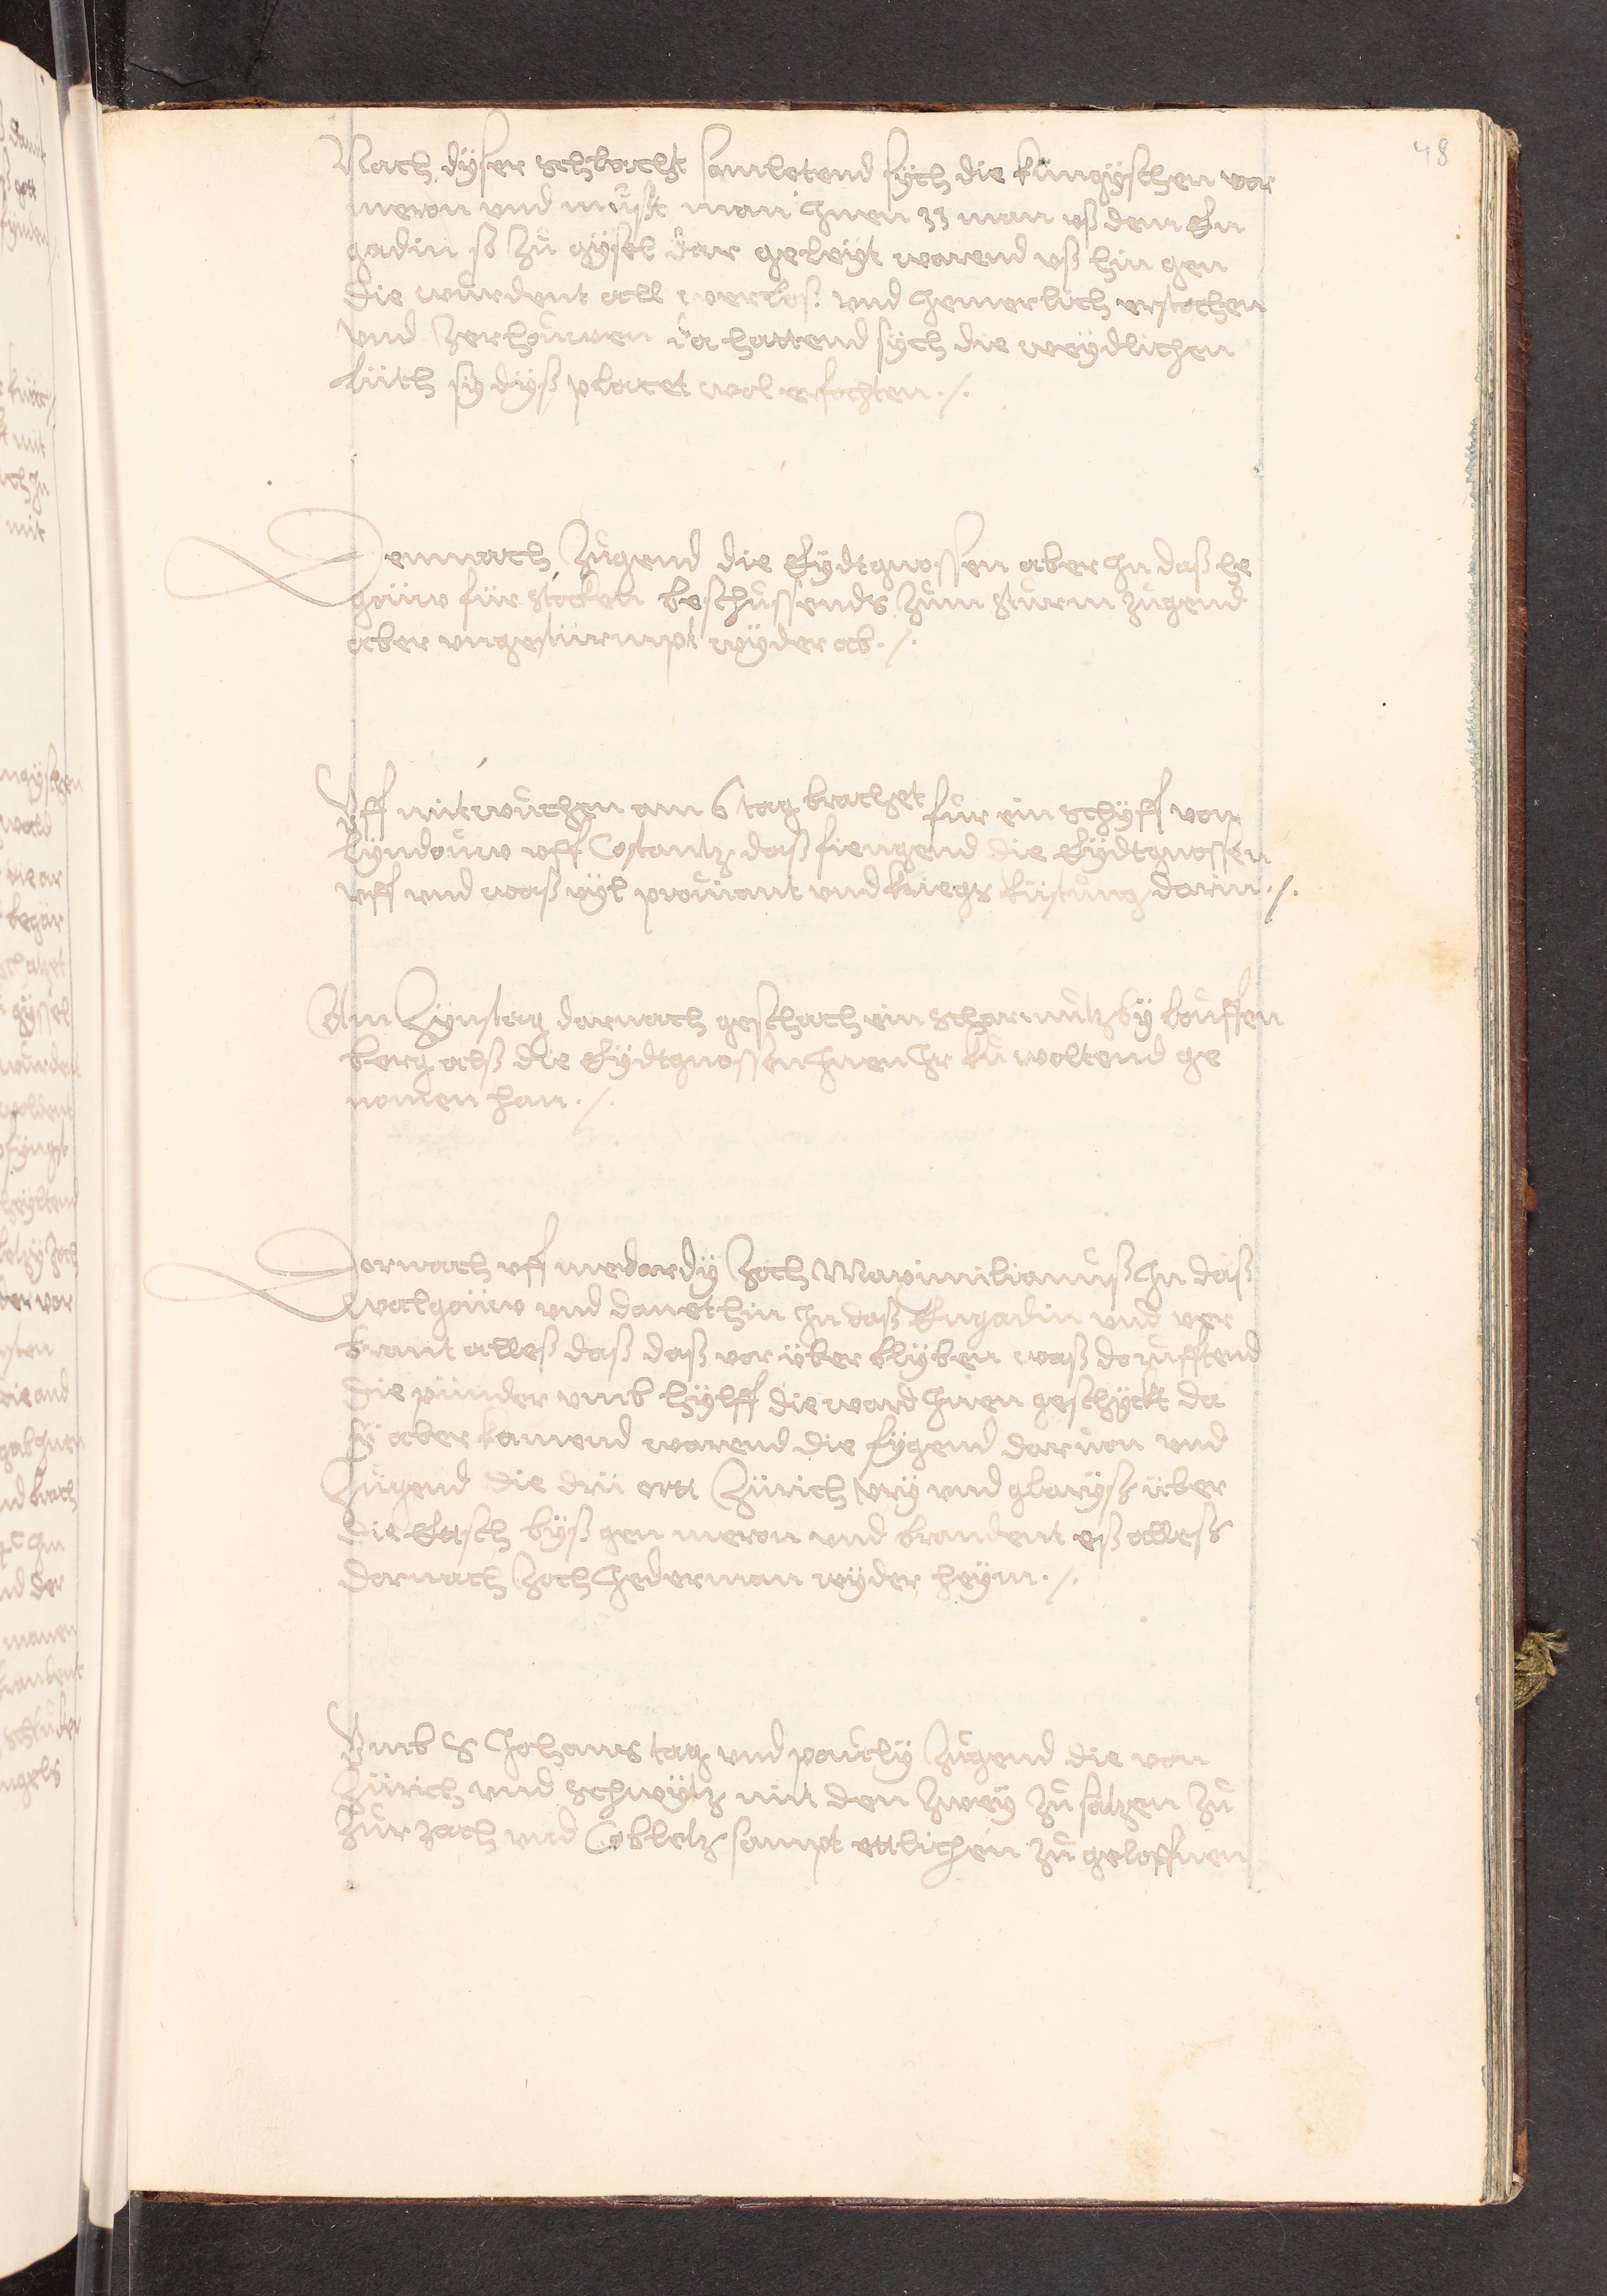 48
Nach dyser schlacht samletend sych die küngyschen vor
meron und müst man jnen 33 man uß dem En
gadin so zů gysel dar geleyt warend uß hin gen
die wurdent all werloß und jemerlich erstochen
und zerhouwen da hattend sych die weydlichen
lüth sy dyß placet wol erfochten ./.
Demnach zugend die Eydtgnossen aber jn daß he
göüw für stocken beschussends zum sturm zugend
aber ungestürmpt wyder ab ./.
Uff mitwuchen am 6 tag brachet für ein schyff von
Lyndouw uff Costantz daß fiengend die Eydtgnossen
uff und waß vyl profiant und kriegs rüstung darin ./.
Am Zynstag darnach geschach ein scharmutz by louffen
berg alß die Eydtgnossen jnen jr kü woltend ge
nomen han ./.
Darnach uff medardy zoch Maximilianuß jn daß
walgöüw und danethin jn daß Engadin und ver
brant alleß daß daß vor über blyben waß do rufftend
die pünder umb hylff die ward jnen geschyckt da
sy aber kamend warend die fygend darvon und
zugend die drü ort Zürich ury und glaryß über
die Etsch byß gen meron und brandent eß alleß
darnach zoch jederman wyder heym ./.
Umb S Johans tag und pauly zugend die von
Zürich und Schwytz mit den zwey zů sätzen zů
Zurzach und Cobletz sampt ettlichen zů geloffnen